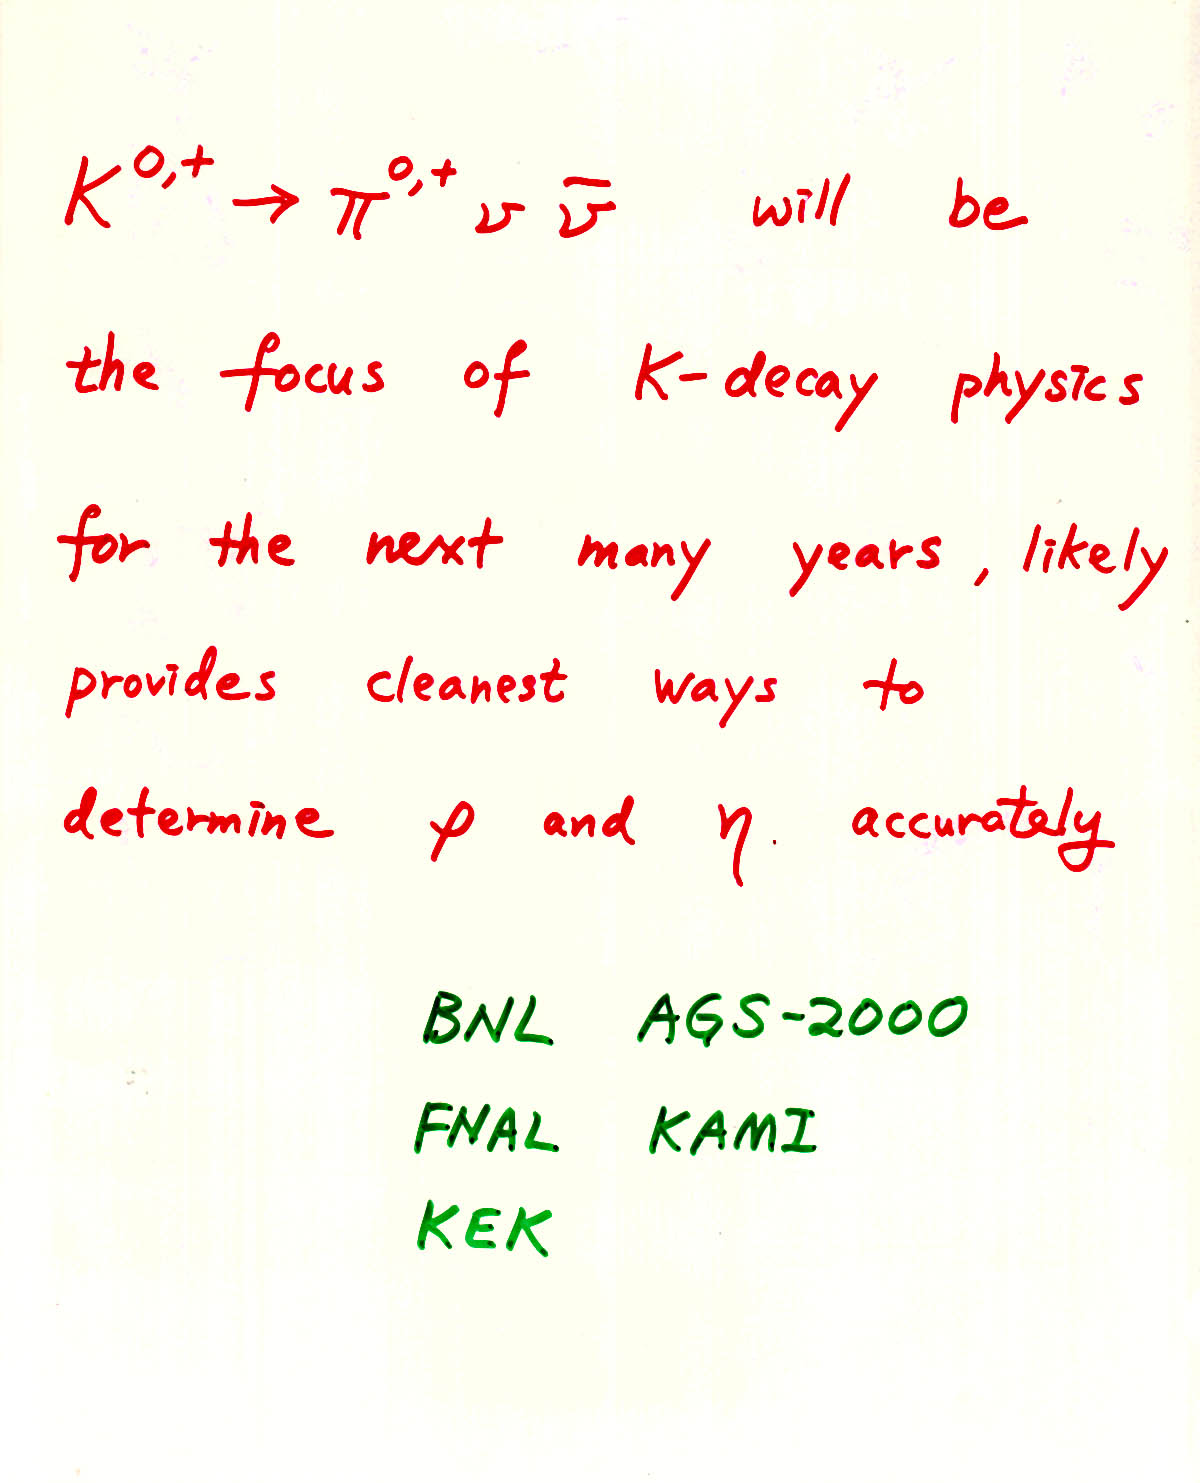 K⁰,⁺ → π⁰,⁺ ν ν̄ will be
the focus of K-decay physics
for the next many years, likely
provides cleanest ways to
determine ρ and η. accurately
BNL AGS-2000
FNAL KAMI
KEK